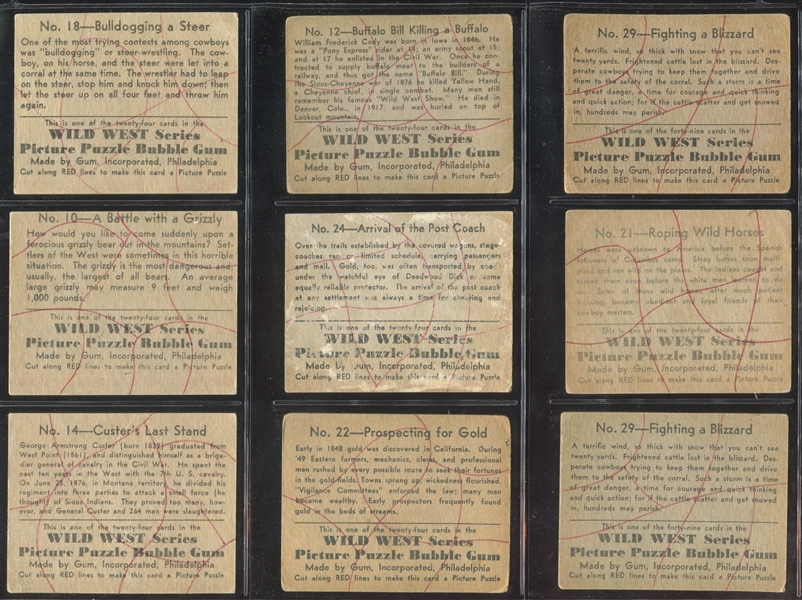 No. 18—Bulldogging a Steer
One of the most trying contests among cowboys
was "bulldogging" or steer-wrestling. The cow-
boy, on his horse, and the steer were let into a
corral at the same time. The wrestler had to leap
on the steer, stop him and knock him down; then
let the steer up on all four feet and throw him
again.
This is one of the twenty-four cards in the
WILD WEST Series
Picture Puzzle Bubble Gum
Made by Gum, Incorporated, Philadelphia
Cut along RED lines to make this card a Picture Puzzle
No. 12—Buffalo Bill Killing a Buffalo
William Frederick Cody was born in Iowa in 1846. He
was a "Pony Express" rider at 14; an army scout at 15;
and at 17 he enlisted in the Civil War. Once he con-
tracted to supply buffalo meat to the builders of a
railway, and thus got the name "Buffalo Bill." During
the Sioux-Cheyenne war of 1876 he killed Yellow Hand,
a Cheyenne chief, in single combat. Many men still
remember his famous "Wild West Show." He died in
Denver, Colo., in 1917, and was buried on top of
Lookout mountain.
This is one of the twenty-four cards in the
WILD WEST Series
Picture Puzzle Bubble Gum
Made by Gum, Incorporated, Philadelphia
Cut along RED lines to make this card a Picture Puzzle
No. 29—Fighting a Blizzard
A terrific wind, so thick with snow that you can't see
twenty yards. Frightened cattle lost in the blizzard. Des-
perate cowboys trying to keep them together and drive
them to the safety of the corral. Such a storm is a time
of great danger, a time for courage and quick thinking
and quick action; for if the cattle scatter and get snowed
in, hundreds may perish.
This is one of the forty-nine cards in the
WILD WEST Series
Picture Puzzle Bubble Gum
Made by Gum, Incorporated, Philadelphia
Cut along RED lines to make this card a Picture Puzzle
No. 10—A Battle with a Grizzly
How would you like to come suddenly upon a
ferocious grizzly bear out in the mountains? Set-
tlers of the West were sometimes in this horrible
situation. The grizzly is the most dangerous and
usually, the largest of all bears. An average
large grizzly may measure 9 feet and weigh
1,000 pounds.
This is one of the twenty-four cards in the
WILD WEST Series
Picture Puzzle Bubble Gum
Made by Gum, Incorporated, Philadelphia
Cut along RED lines to make this card a Picture Puzzle
No. 24—Arrival of the Post Coach
Over the trails established by the covered wagons, stage-
coaches ran on limited schedule, carrying passengers
and mail. Gold, too, was often transported by coach
under the watchful eye of Deadwood Dick or some
equally reliable protector. The arrival of the post coach
at any settlement was always a time for cheering and
rejoicing.
This is one of the twenty-four cards in the
WILD WEST Series
Picture Puzzle Bubble Gum
Made by Gum, Incorporated, Philadelphia
Cut along RED lines to make this card a Picture Puzzle
No. 21—Roping Wild Horses
Horses were unknown to America, before the Spanish
followers of Columbus came. Stray horses soon multi-
plied and ran wild on the plains. The Indians caught and
tamed them even before the white men learned to do
so. Some of these wild horses after much patient
training, became obedient and loyal friends of their
cowboy masters.
This is one of the twenty-four cards in the
WILD WEST Series
Picture Puzzle Bubble Gum
Made by Gum, Incorporated, Philadelphia
Cut along RED lines to make this card a Picture Puzzle
No. 14—Custer's Last Stand
George Armstrong Custer (born 1839) graduated from
West Point (1861), and distinguished himself as a briga-
dier general of cavalry in the Civil War. He spent the
next ten years in the West with the 7th U.S. cavalry.
On June 25, 1876, in Montana territory, he divided his
regiment into three parties to attack a small force (he
thought) of Sioux Indians. They proved too many, how-
ever, and General Custer and 264 men were slaughtered.
This is one of the twenty-four cards in the
WILD WEST Series
Picture Puzzle Bubble Gum
Made by Gum, Incorporated, Philadelphia
Cut along RED lines to make this card a Picture Puzzle
No. 22—Prospecting for Gold
Early in 1848 gold was discovered in California. During
'49 Eastern farmers, mechanics, clerks, and professional
men rushed by every possible route to seek their fortunes
in the gold-fields. Towns sprang up, wickedness flourished.
"Vigilance Committees" enforced the law; many men
became wealthy. Early prospectors frequently found
gold in the beds of streams.
This is one of the twenty-four cards in the
WILD WEST Series
Picture Puzzle Bubble Gum
Made by Gum, Incorporated, Philadelphia
Cut along RED lines to make this card a Picture Puzzle
No. 29—Fighting a Blizzard
A terrific wind, so thick with snow that you can't see
twenty yards. Frightened cattle lost in the blizzard. Des-
perate cowboys trying to keep them together and drive
them to the safety of the corral. Such a storm is a time
of great danger, a time for courage and quick thinking
and quick action; for if the cattle scatter and get snowed
in, hundreds may perish.
This is one of the forty-nine cards in the
WILD WEST Series
Picture Puzzle Bubble Gum
Made by Gum, Incorporated, Philadelphia
Cut along RED lines to make this card a Picture Puzzle